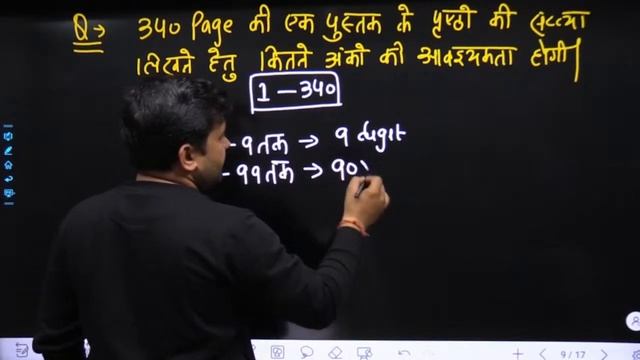 Q→ 340 Page की एक पुस्तक के पृष्ठो की संख्या
लिखने हेतु कितने अंको की आवश्यकता होगी
1 — 340
- 9 तक → 9 digit
- 99 तक → 90
9 / 17